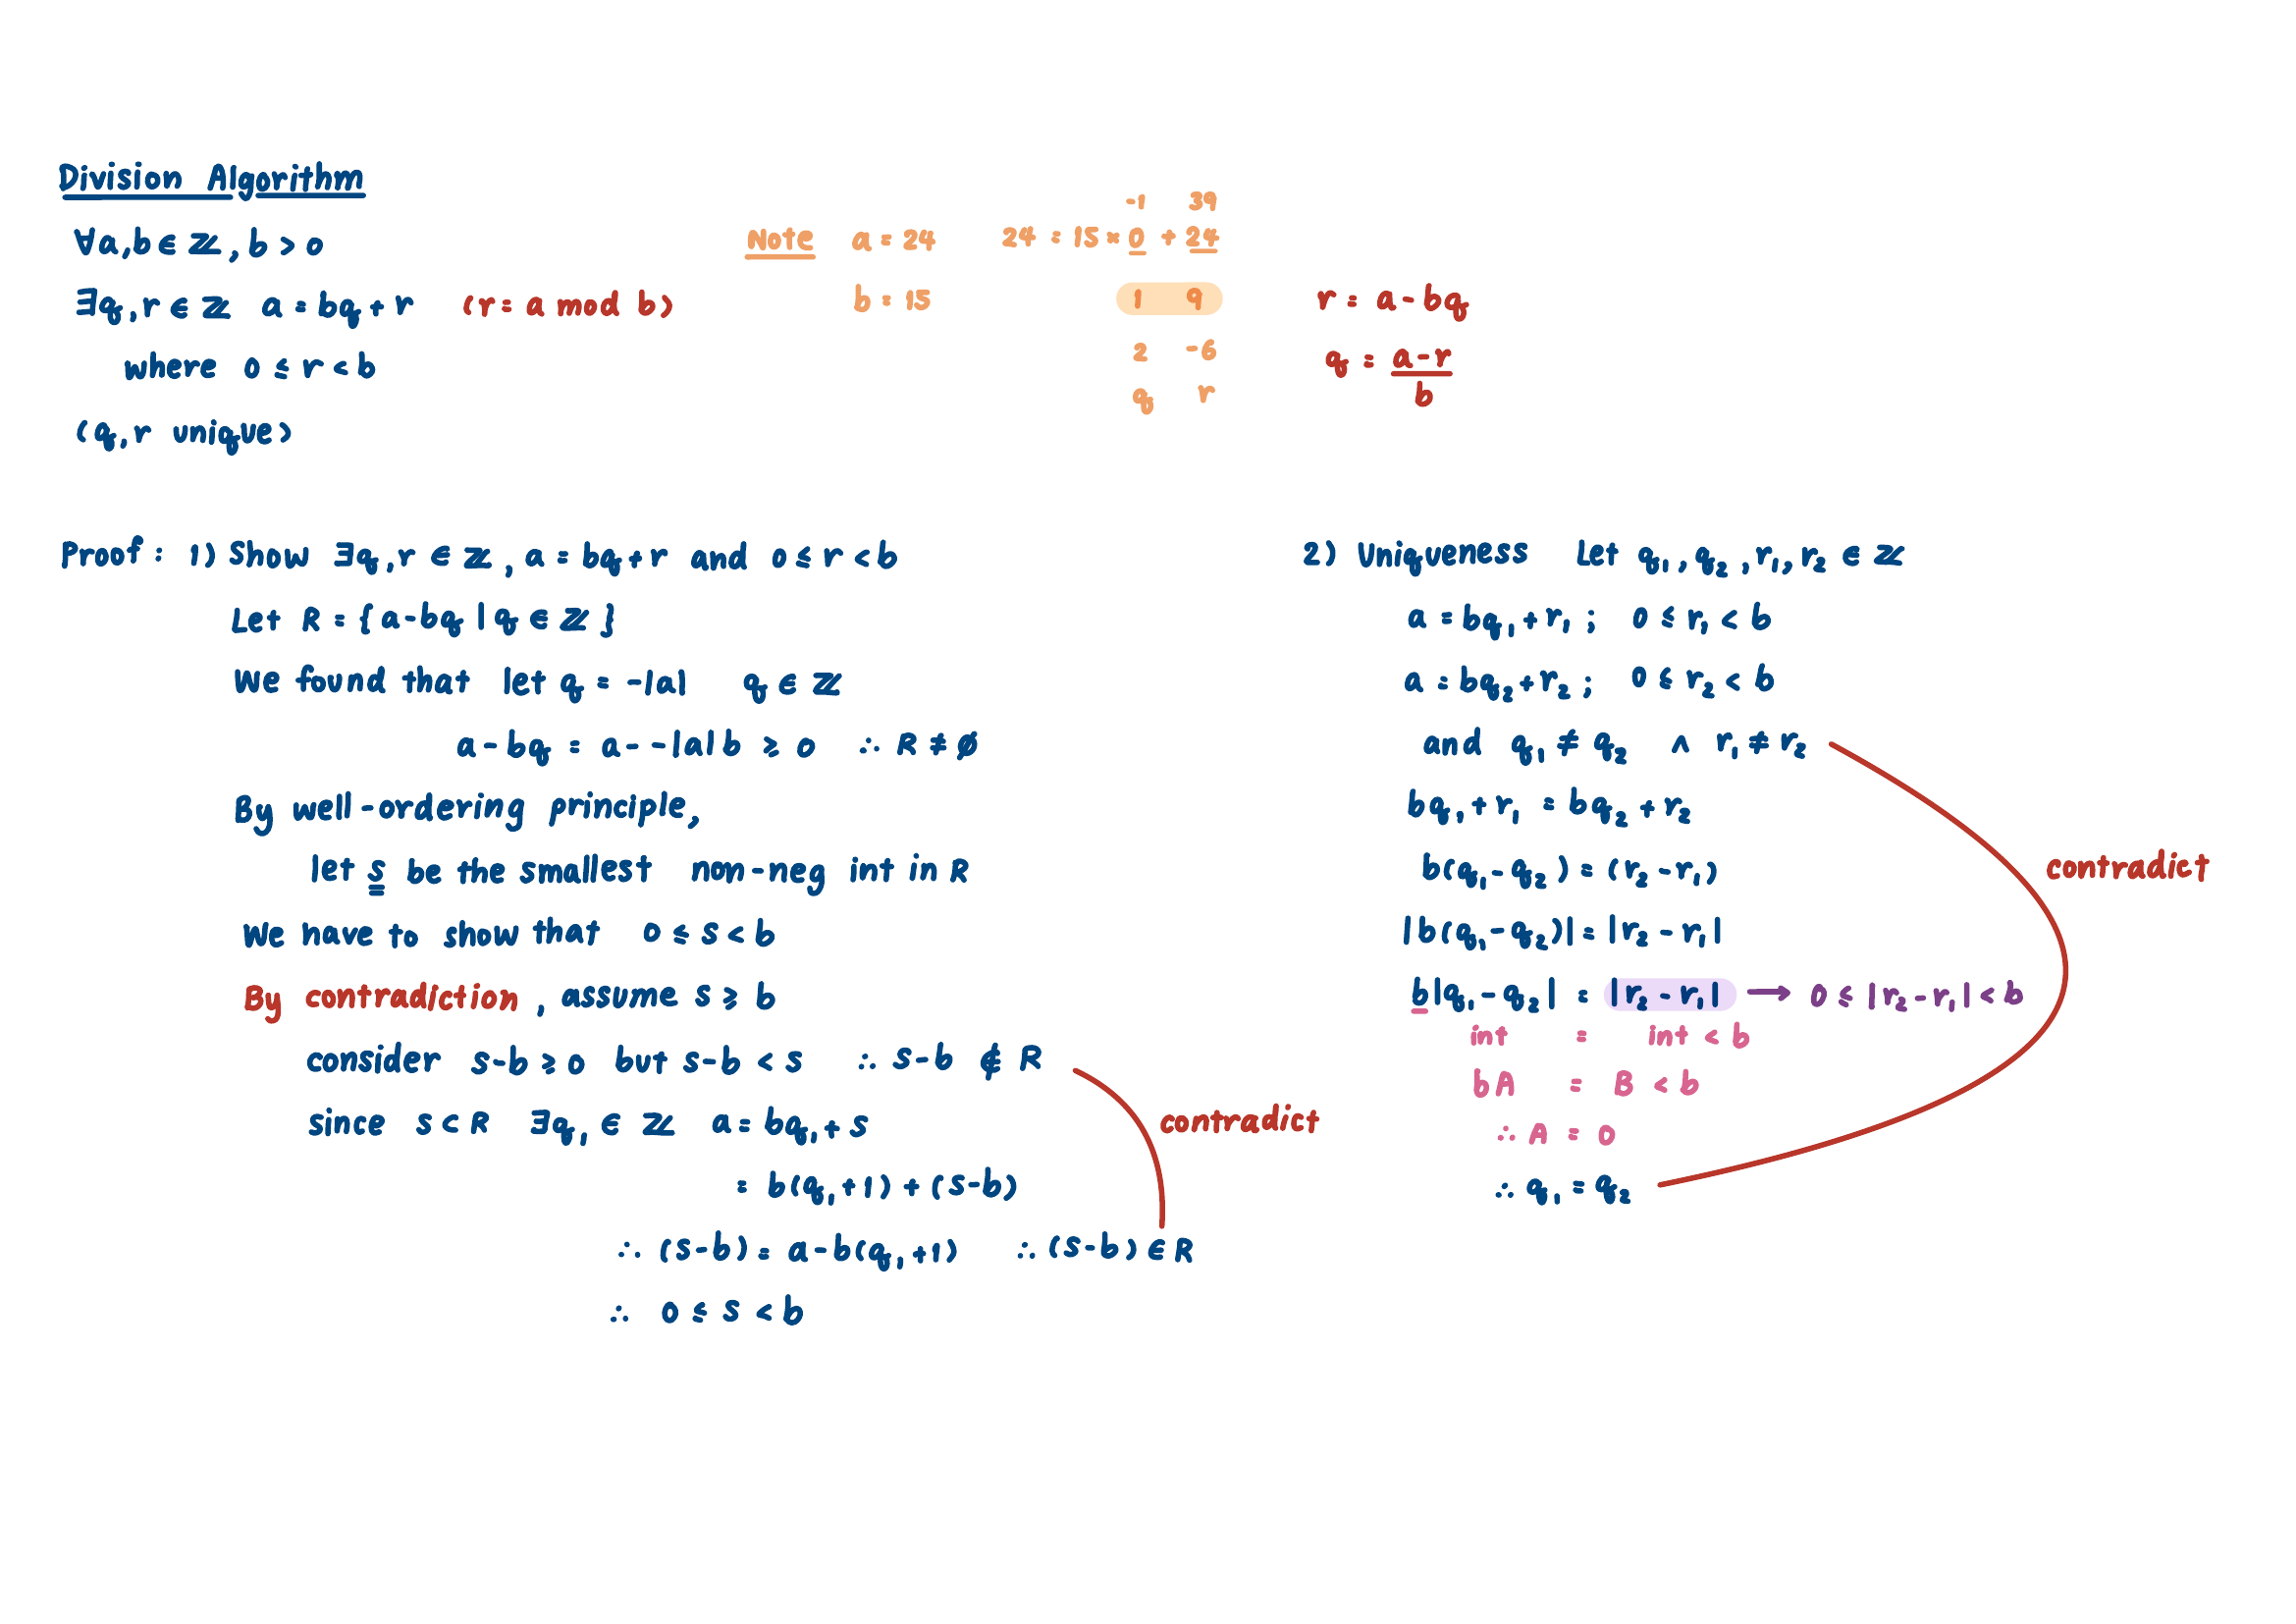 Division Algorithm
∀a,b ∈ ℤ, b > 0
∃q,r ∈ ℤ a = bq + r (r = a mod b)
where 0 ≤ r < b
(q,r unique)
Note a = 24 24 = 15 × 0 + 24
-1 39
b = 15 1 9
2 -6
q r
r = a - bq
q = a - r / b
Proof : 1) Show ∃q,r ∈ ℤ, a = bq + r and 0 ≤ r < b
Let R = { a - bq | q ∈ ℤ }
We found that let q = -|a| q ∈ ℤ
a - bq = a - -|a| b ≥ 0 ∴ R ≠ ∅
By well-ordering principle,
let s be the smallest non-neg int in R
We have to show that 0 ≤ s < b
By contradiction, assume s ≥ b
consider s-b ≥ 0 but s-b < s ∴ s-b ∉ R
since s ⊂ R ∃q₁ ∈ ℤ a = bq₁ + s
= b(q₁+1) + (s-b)
∴ (s-b) = a - b(q₁+1) ∴ (s-b) ∈ R
contradict
∴ 0 ≤ s < b
2) Uniqueness Let q₁, q₂, r₁, r₂ ∈ ℤ
a = bq₁ + r₁ ; 0 ≤ r₁ < b
a = bq₂ + r₂ ; 0 ≤ r₂ < b
and q₁ ≠ q₂ ∧ r₁ ≠ r₂
bq₁ + r₁ = bq₂ + r₂
b(q₁ - q₂) = (r₂ - r₁)
|b(q₁ - q₂)| = |r₂ - r₁|
b|q₁ - q₂| = |r₂ - r₁| → 0 ≤ |r₂ - r₁| < b
int = int < b
bA = B < b
∴ A = 0
∴ q₁ = q₂
contradict